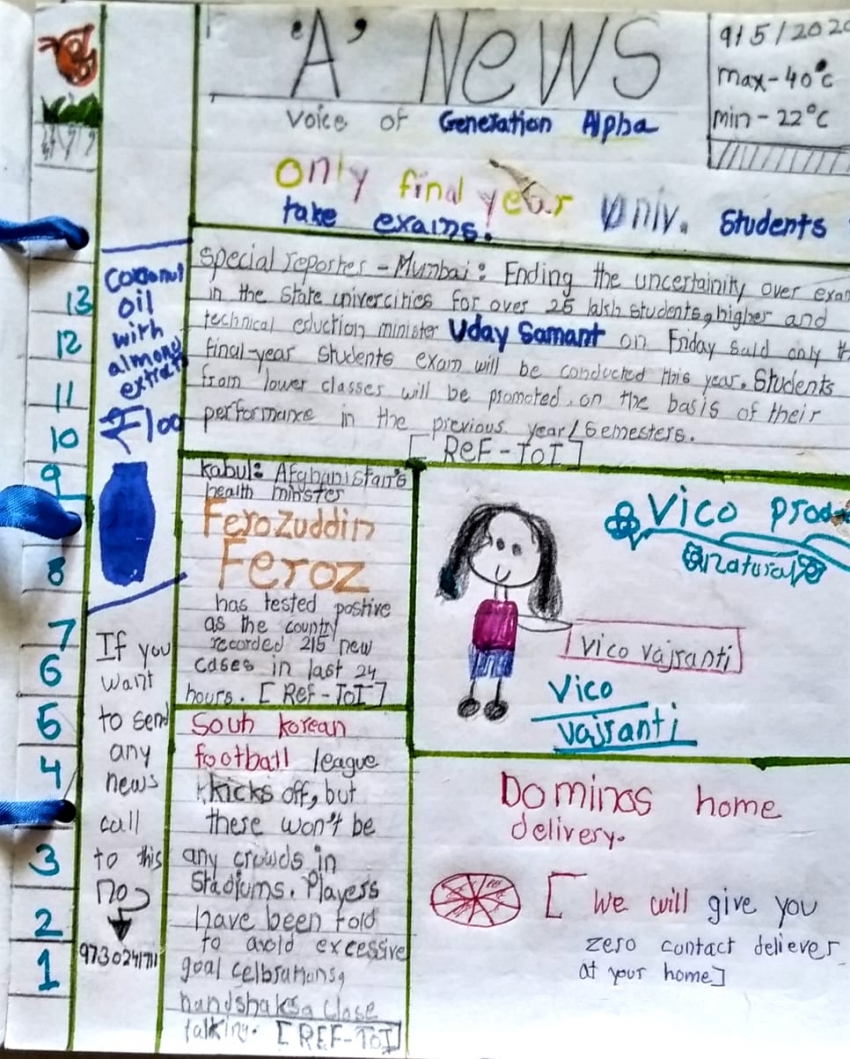 'A' News
9/5/202
max-40°c
min-22°c
voice of Generation Alpha
only final year univ. Students
take exams.
Special reporter - Mumbai: Ending the uncertainity over exam
in the state univercities for over 25 lakh students, higher and
technical eduction minister Uday Samant on Friday said only th
final-year students exam will be conducted this year. Students
from lower classes will be promoted, on the basis of their
performance in the previous year/Semesters.
[REF-TOI]
Coconut
oil
with
almond
extrat
₹100
If you
want
to send
any
news
call
to this
no
9730241711
13
12
11
10
9
8
7
6
5
4
3
2
1
kabul: Afganistan's
health minster
Ferozuddin
Feroz
has tested postive
as the country
recorded 215 new
cases in last 24
hours. [Ref-ToI]
Vico Prod
Natural
Vico vajranti
Vico
vajranti
Souh korean
football league
kicks off, but
there won't be
any crowds in
Stadiums. Players
have been told
to avoid excessive
goal celbrations,
handshaks, close
talking. [REF-ToI]
Dominos home
delivery.
[We will give you
zero contact deliever
at your home]